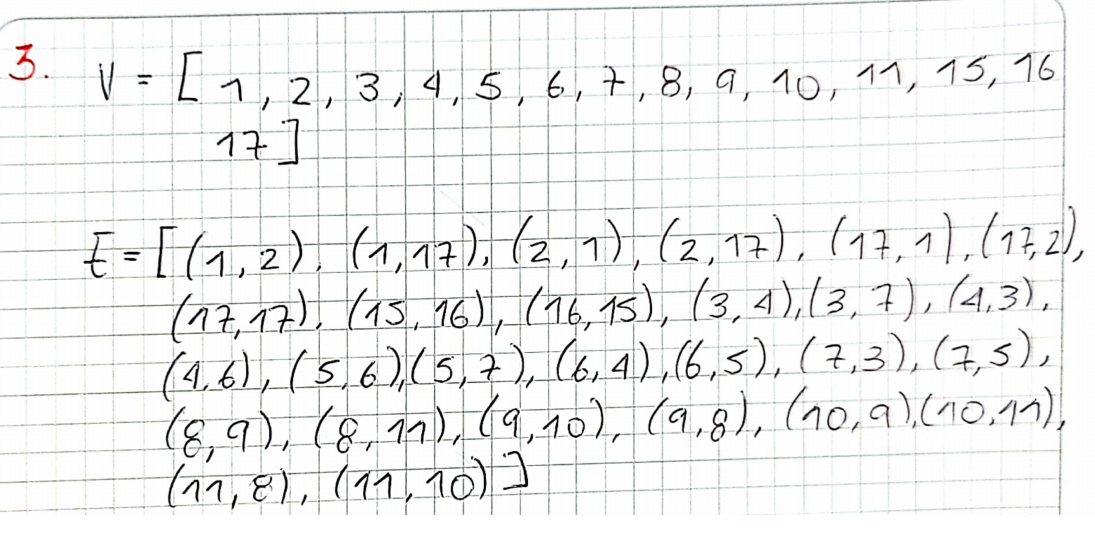 3. V = [ 1, 2, 3, 4, 5, 6, 7, 8, 9, 10, 11, 15, 16
17 ]
E = [ (1, 2), (1, 17), (2, 1), (2, 17), (17, 1), (17, 2),
(17, 17), (15, 16), (16, 15), (3, 4), (3, 7), (4, 3),
(4, 6), (5, 6), (5, 7), (6, 4), (6, 5), (7, 3), (7, 5),
(8, 9), (8, 11), (9, 10), (9, 8), (10, 9), (10, 11),
(11, 8), (11, 10) ]